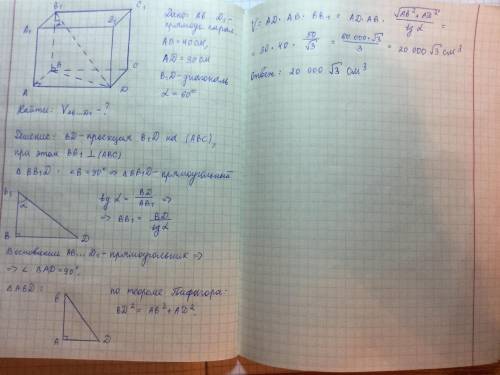 B₁ C₁
A₁ D₁
α
B C
A D
Дано: AB...D₁ -
прямоуг. парал.
AB = 40 см,
AD = 30 см
B₁D - диагональ
α = 60°
Найти: V AB...D₁ - ?
Решение: BD - проекция B₁D на (ABC),
при этом BB₁ ⊥ (ABC)
△ BB₁D: ∠B = 90° ⇒ △BB₁D - прямоугольный
B₁
α
B D
tg α = BD/BB₁ ⇒
⇒ BB₁ = BD/tg α
В основании AB...D₁ - прямоугольник ⇒
⇒ ∠ BAD = 90°.
△ABD:
B
A D
по теореме Пифагора:
BD² = AB² + AD²
V = AD · AB · BB₁ = AD · AB · √(AB² + AD²)/tg α =
= 30 · 40 · 50/√3 = 60 000 · √3/3 = 20 000 √3 см³
Ответ: 20 000 √3 см³